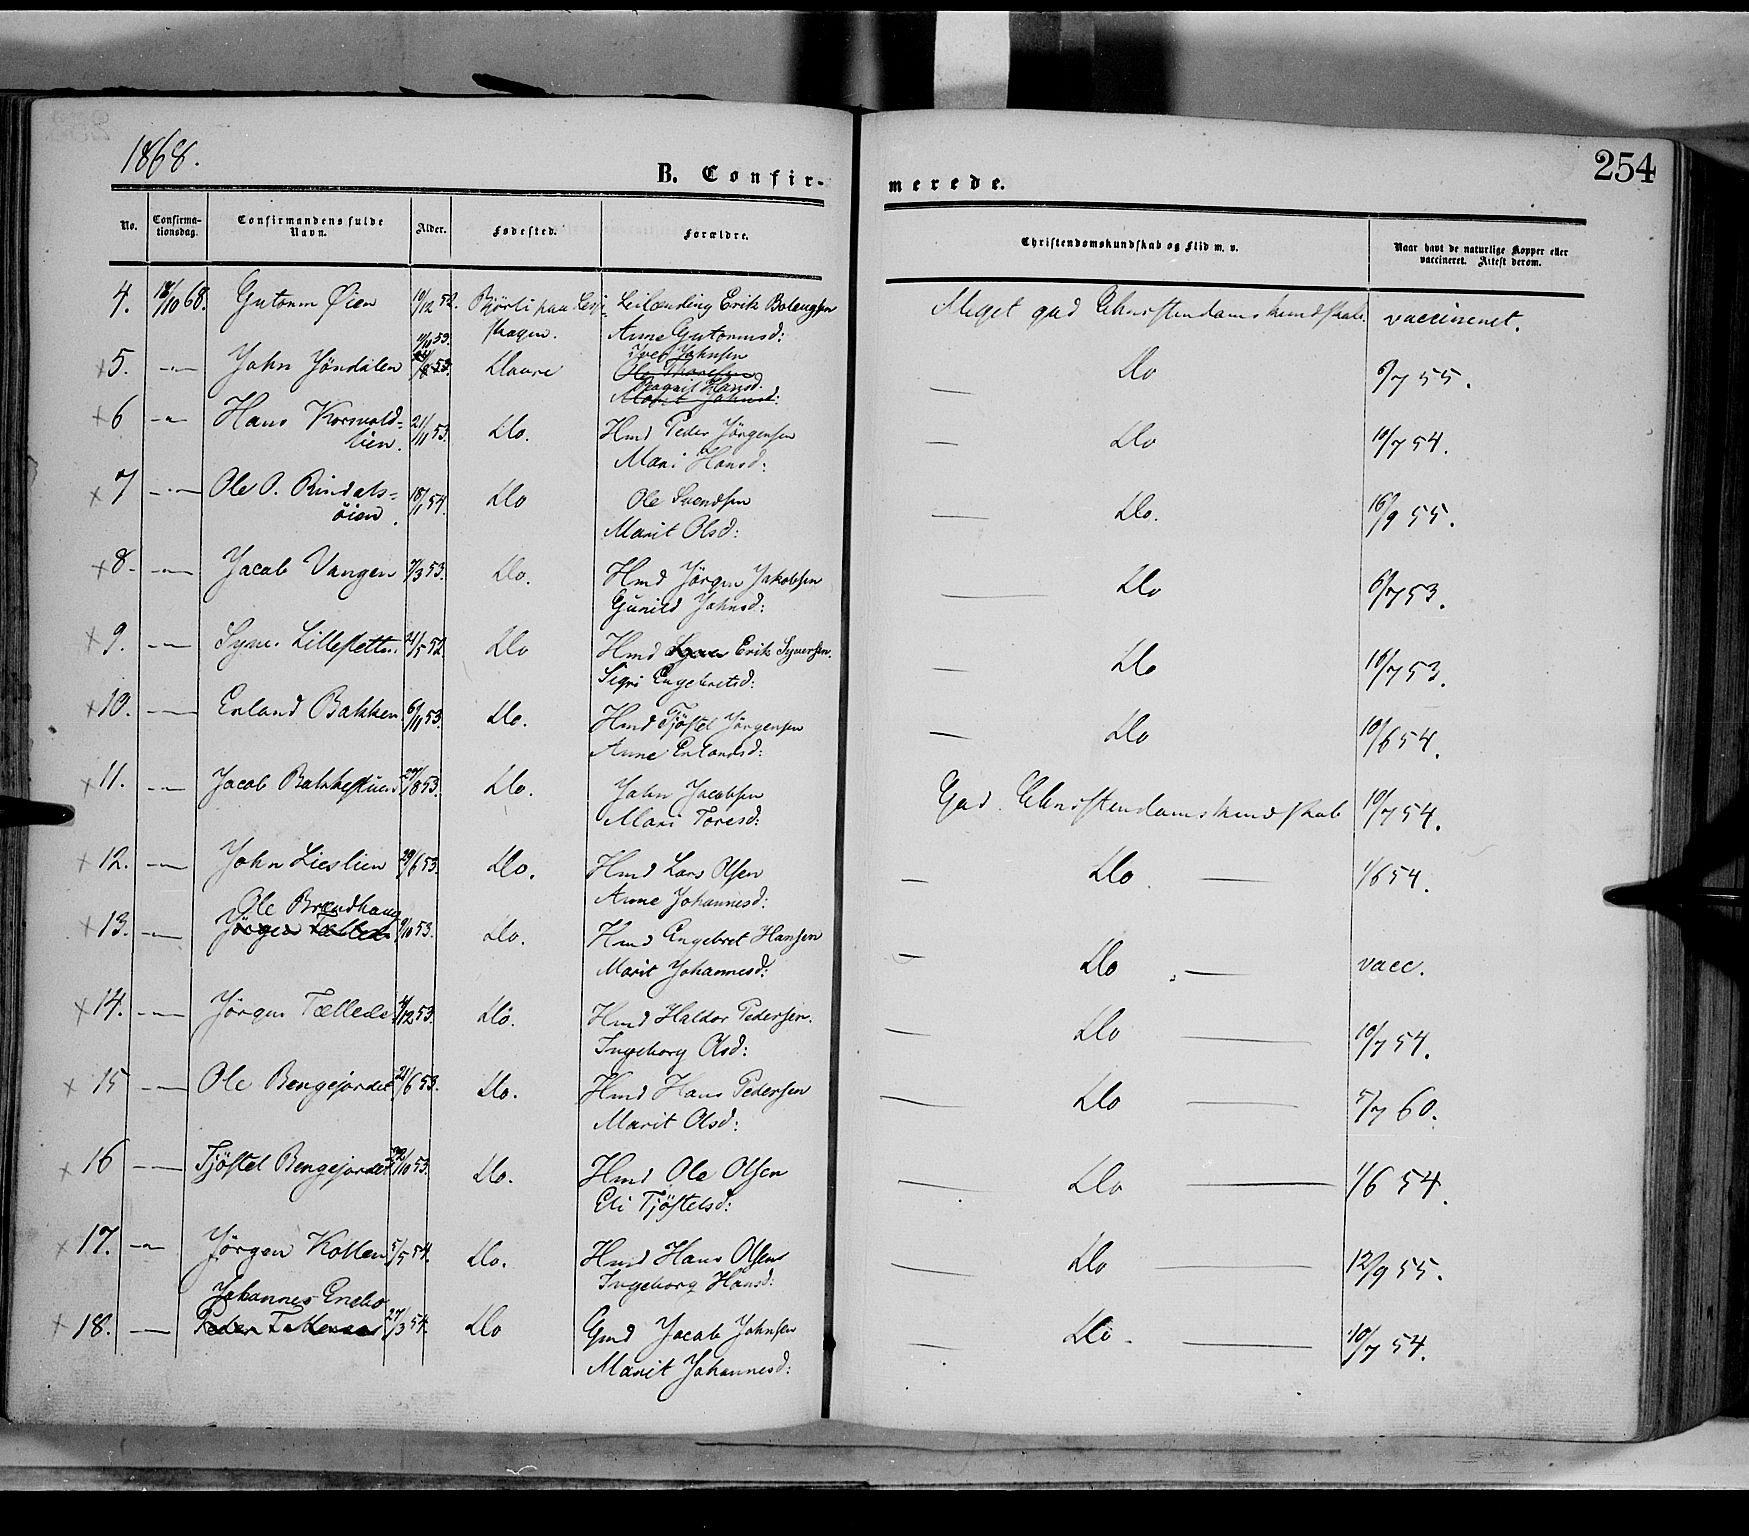 1868.
254
B. Confir-
merede.
No. Confirma-tionsdag. Confirmandens fulde Navn. Alder. Fødested. Forældre. Christendomskundskab og Flid m. v. Naar havt de naturlige Kopper eller vaccineret. Attest derom.
4. 18/10 68. Gutorm Øien 19/12 52. Bjørli paa Lesje- Leilænding Erik
skagen. Anne Gutormsd: Meget god Christendomskundskab. vaccineret.
11/11 53. Iver Johnsen
5. -"- John Jøndalen Daure Ole Thoresen Do 6/7 55.
Ragnil Hansd.
Marit Johnsd:
6 -"- Hans Korsvold= 21/11 53. Do. Hmd Peder Jørgensen Do 10/7 54.
lien. Mari Hansd:
7 -"- Ole O. Rindals= 18/1 54. Do Ole Svendsen Do. 16/9 55.
öien. Marit Olsd:
8. -"- Jacob Vangen 7/3 53. Do. Hmd Jörgen Jakobsen Do 6/7 53.
Gunild Johnsd:
9. -"- Syver Lillesletten 21/5 52. Do Hmd Syver Erik Syversen. Do 10/7 53.
Sigri Engebretsd:
10. -"- Erland Bakken 6/11 53. Do. Hmd Tjøstel Jørgensen Do 10/6 54.
Anne Erlandsd:
11. -"- Jacob Bakkestuen 29/8 53. Do. John Jacobsen God Christendomskundskab 10/7 54.
Mari Toresd:
12. -"- John Lieslien 29/6 53. Do. Hmd Lars Olsen Do 1/6 54.
Anne Johannesd:
Ole Brændhaug
13. -"- Jörgen Tællede 9/10 53. Do. Hmd Engebret Hansen Do vacc.
Marit Johannesd:
14. -"- Jörgen Tællede 4/12 53. Do. Hmd Haldor Pedersen. Do 10/7 54.
Ingeborg Olsd:
15 -"- Ole Bengejordet 21/6 53. Do. Hmd Hans Pedersen Do 5/7 60.
Marit Olsd:
16 -"- Tjöstel Bengejordet 22/10 53. Do. Hmd Ole Olsen Do 1/6 54.
Eli Tjöstelsd:
17. -"- Jörgen Kollen 5/5 54. Do. Hmd Hans Olsen Do 12/9 55.
Ingeborg Hansd:
Johannes Enebo
18. -"- Peder 27/3 54. Do Gmd Jacob Johnsen Do. 10/7 54.
Marit Johannesd: